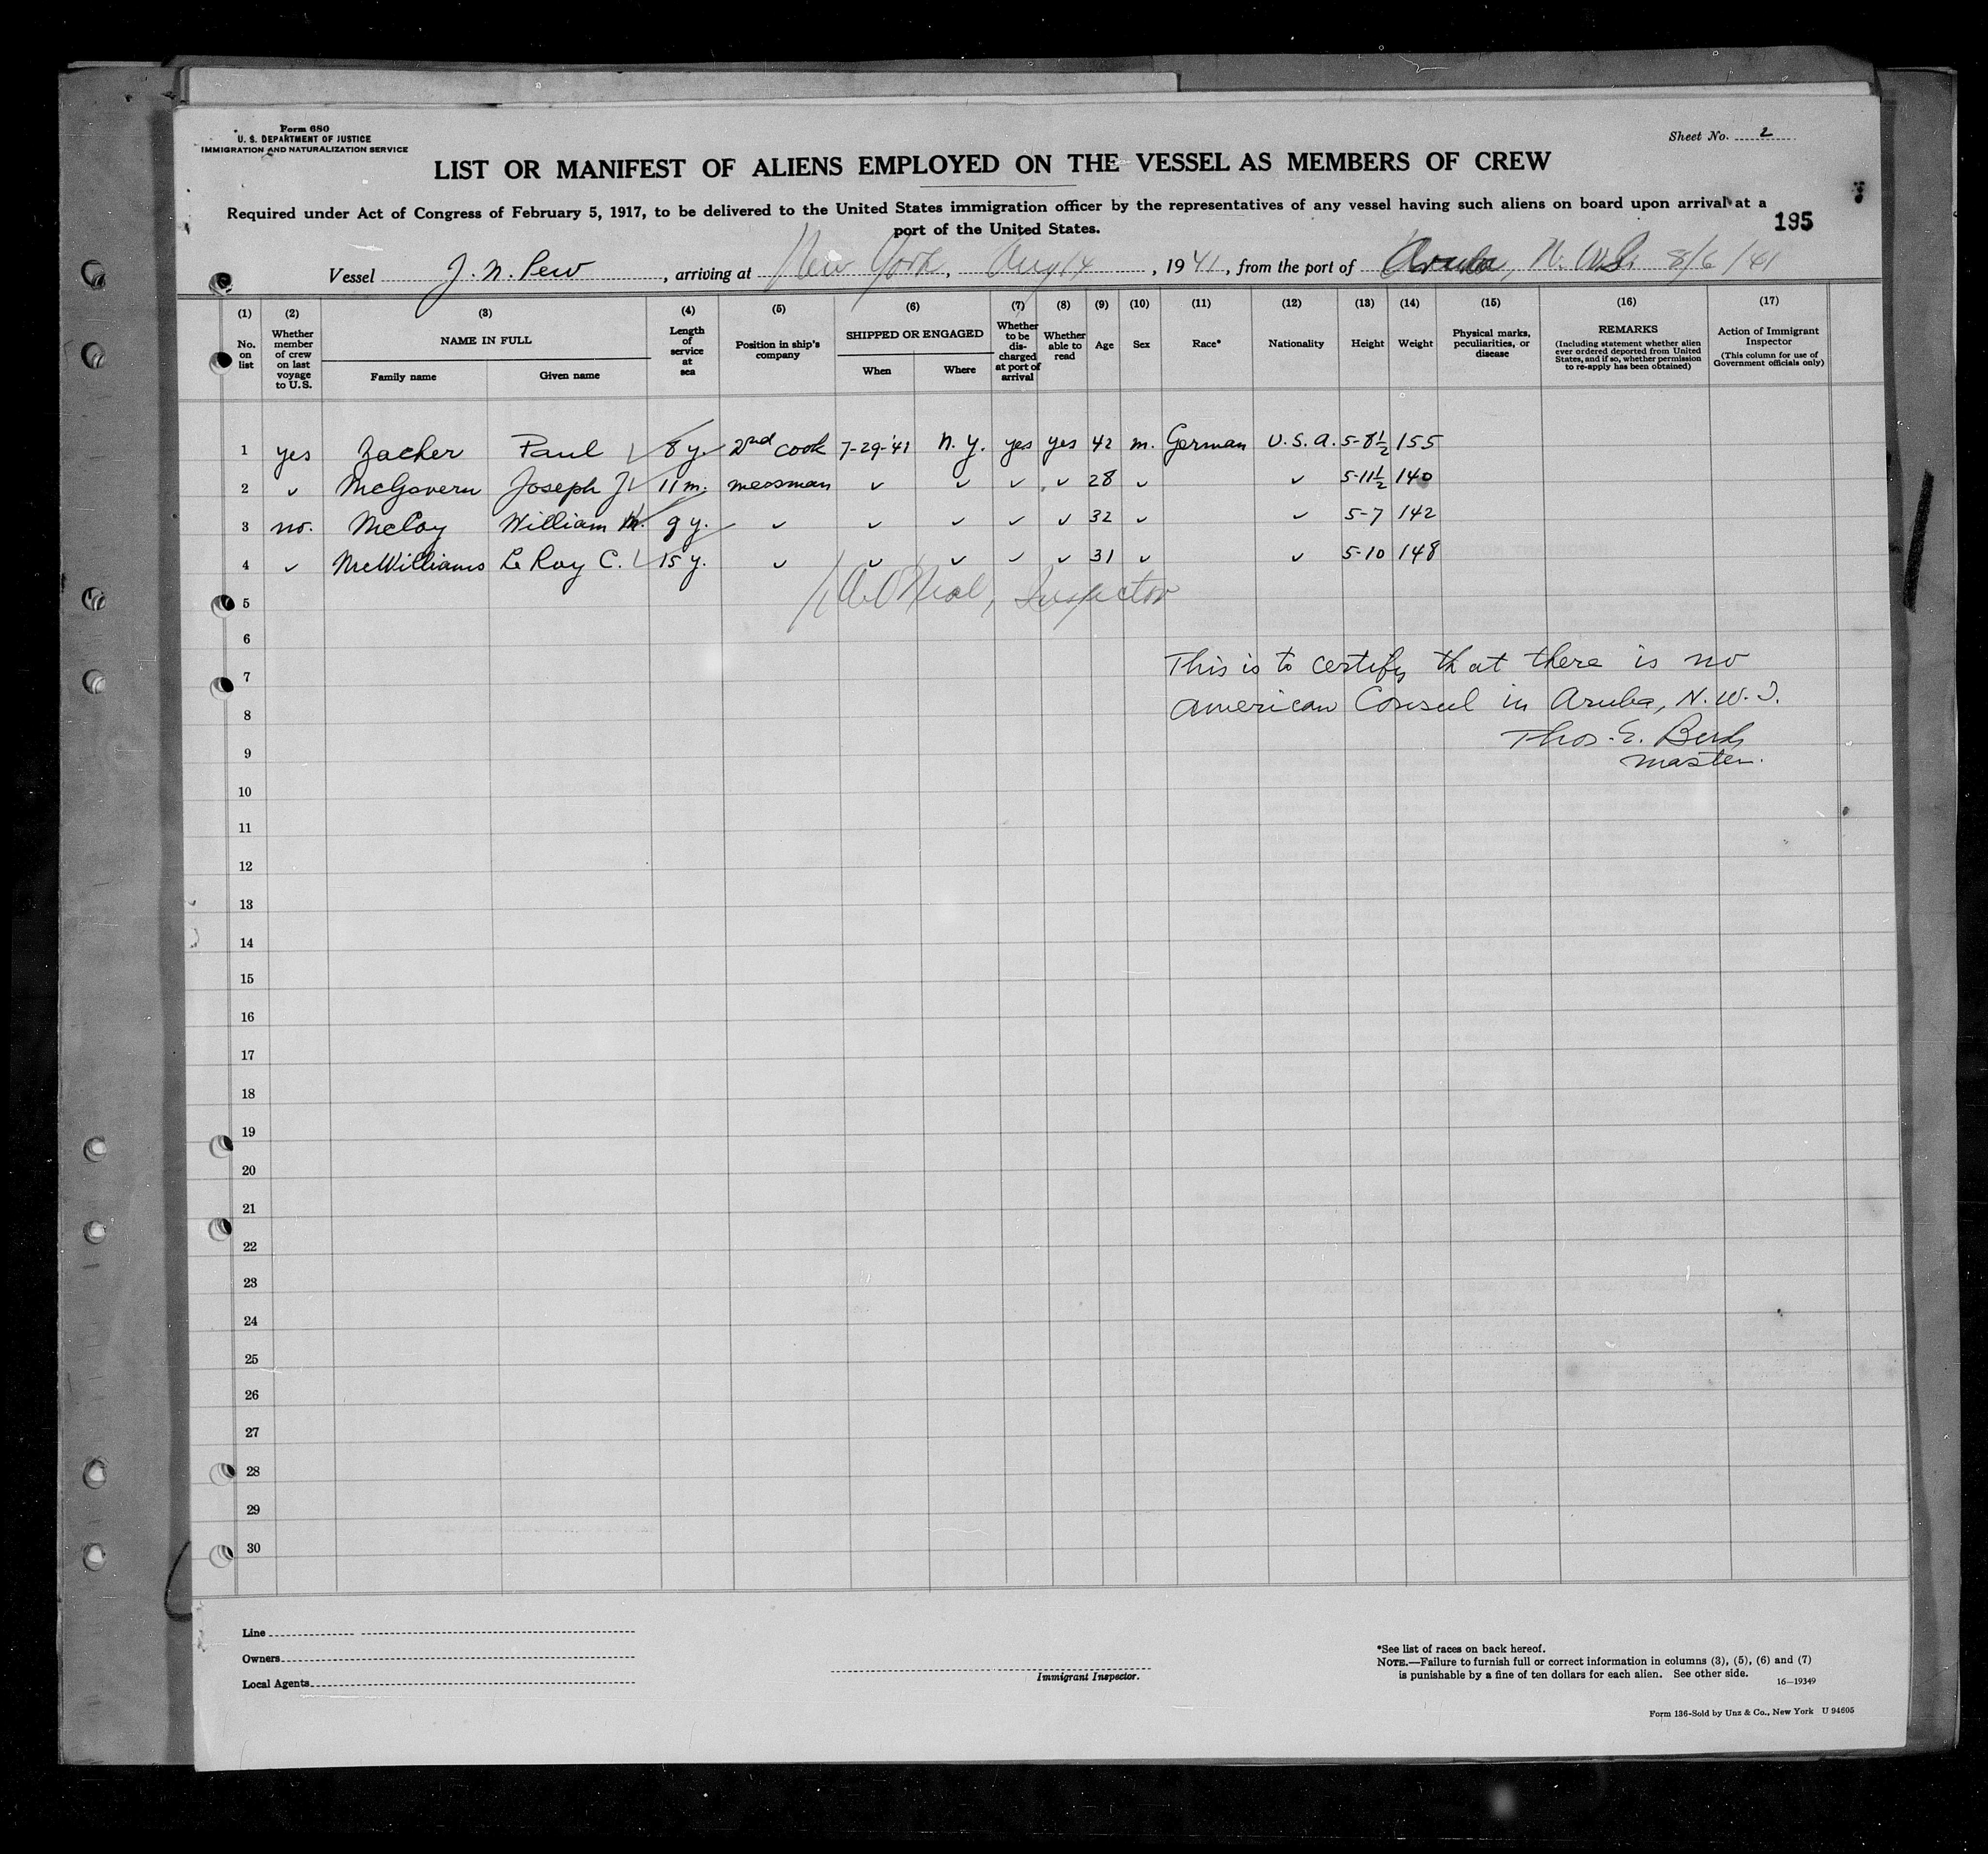 Form 680
U. S. DEPARTMENT OF JUSTICE
IMMIGRATION AND NATURALIZATION SERVICE
Sheet No. 2
LIST OR MANIFEST OF ALIENS EMPLOYED ON THE VESSEL AS MEMBERS OF CREW
Required under Act of Congress of February 5, 1917, to be delivered to the United States immigration officer by the representatives of any vessel having such aliens on board upon arrival at a
port of the United States.
195
Vessel J. N. Pew, arriving at New York, Aug 14, 1941, from the port of Aruba, N. W. I. 8/6/41
(1) (2) (3) (4) (5) (6) (7) (8) (9) (10) (11) (12) (13) (14) (15) (16) (17)
No. on list
Whether member of crew on last voyage to U. S.
NAME IN FULL
Family name
Given name
Length of service at sea
Position in ship's company
SHIPPED OR ENGAGED
When
Where
Whether to be discharged at port of arrival
Whether able to read
Age
Sex
Race*
Nationality
Height
Weight
Physical marks, peculiarities, or disease
REMARKS
(Including statement whether alien ever ordered deported from United States, and if so, whether permission to re-apply has been obtained)
Action of Immigrant Inspector
(This column for use of Government officials only)
1 yes Zacher Paul ✓ 8 y. 2nd cook 7-29-'41 N. Y. yes yes 42 m. German U. S. A. 5-8½ 155
2 ✓ McGovern Joseph J ✓ 11 m. messman ✓ ✓ ✓ ✓ 28 ✓ ✓ 5-11½ 140
3 no. McCoy William 9 y. ✓ ✓ ✓ ✓ ✓ 32 ✓ ✓ 5-7 142
4 ✓ McWilliams Le Roy C. ✓ 15 y. ✓ ✓ ✓ ✓ ✓ 31 ✓ ✓ 5-10 148
5
Inspector
6
7
This is to certify that there is no
8
American Consul in Aruba, N. W. I.
Thos. E.
9
master.
10
11
12
13
14
15
16
17
18
19
20
21
22
23
24
25
26
27
28
29
30
Line
Owners
Local Agents
Immigrant Inspector.
*See list of races on back hereof.
NOTE.—Failure to furnish full or correct information in columns (3), (5), (6) and (7)
is punishable by a fine of ten dollars for each alien. See other side.
16—19349
Form 136-Sold by Unz & Co., New York U 94605